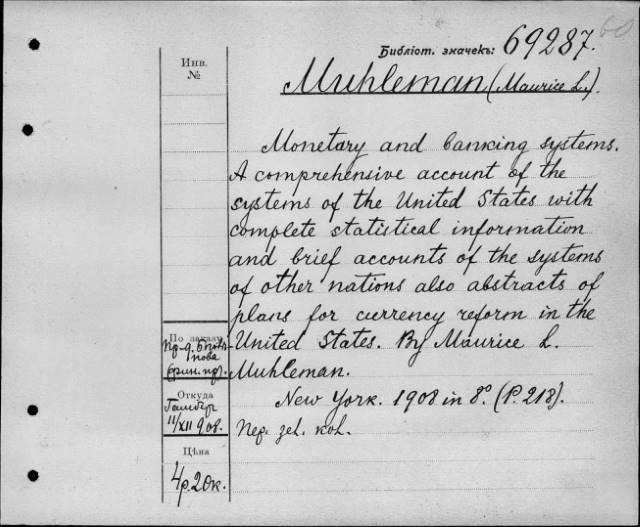 60
Библіот. значекъ: 69287.
Инв.
№
Muhleman (Maurice L.).
Monetary and banking systems.
A comprehensive account of the
systems of the United States with
complete statistical information
and brief accounts of the systems
of other nations also abstracts of
plans for currency reform in the
United States. By Maurice L.
Muhleman.
New York. 1908 in 8º. (P. 218).
Пер. zel. kol.
По заказу
пр-д.
пова
(фин. пр.)
Откуда
11/XII 908.
Цѣна
4р. 20к.